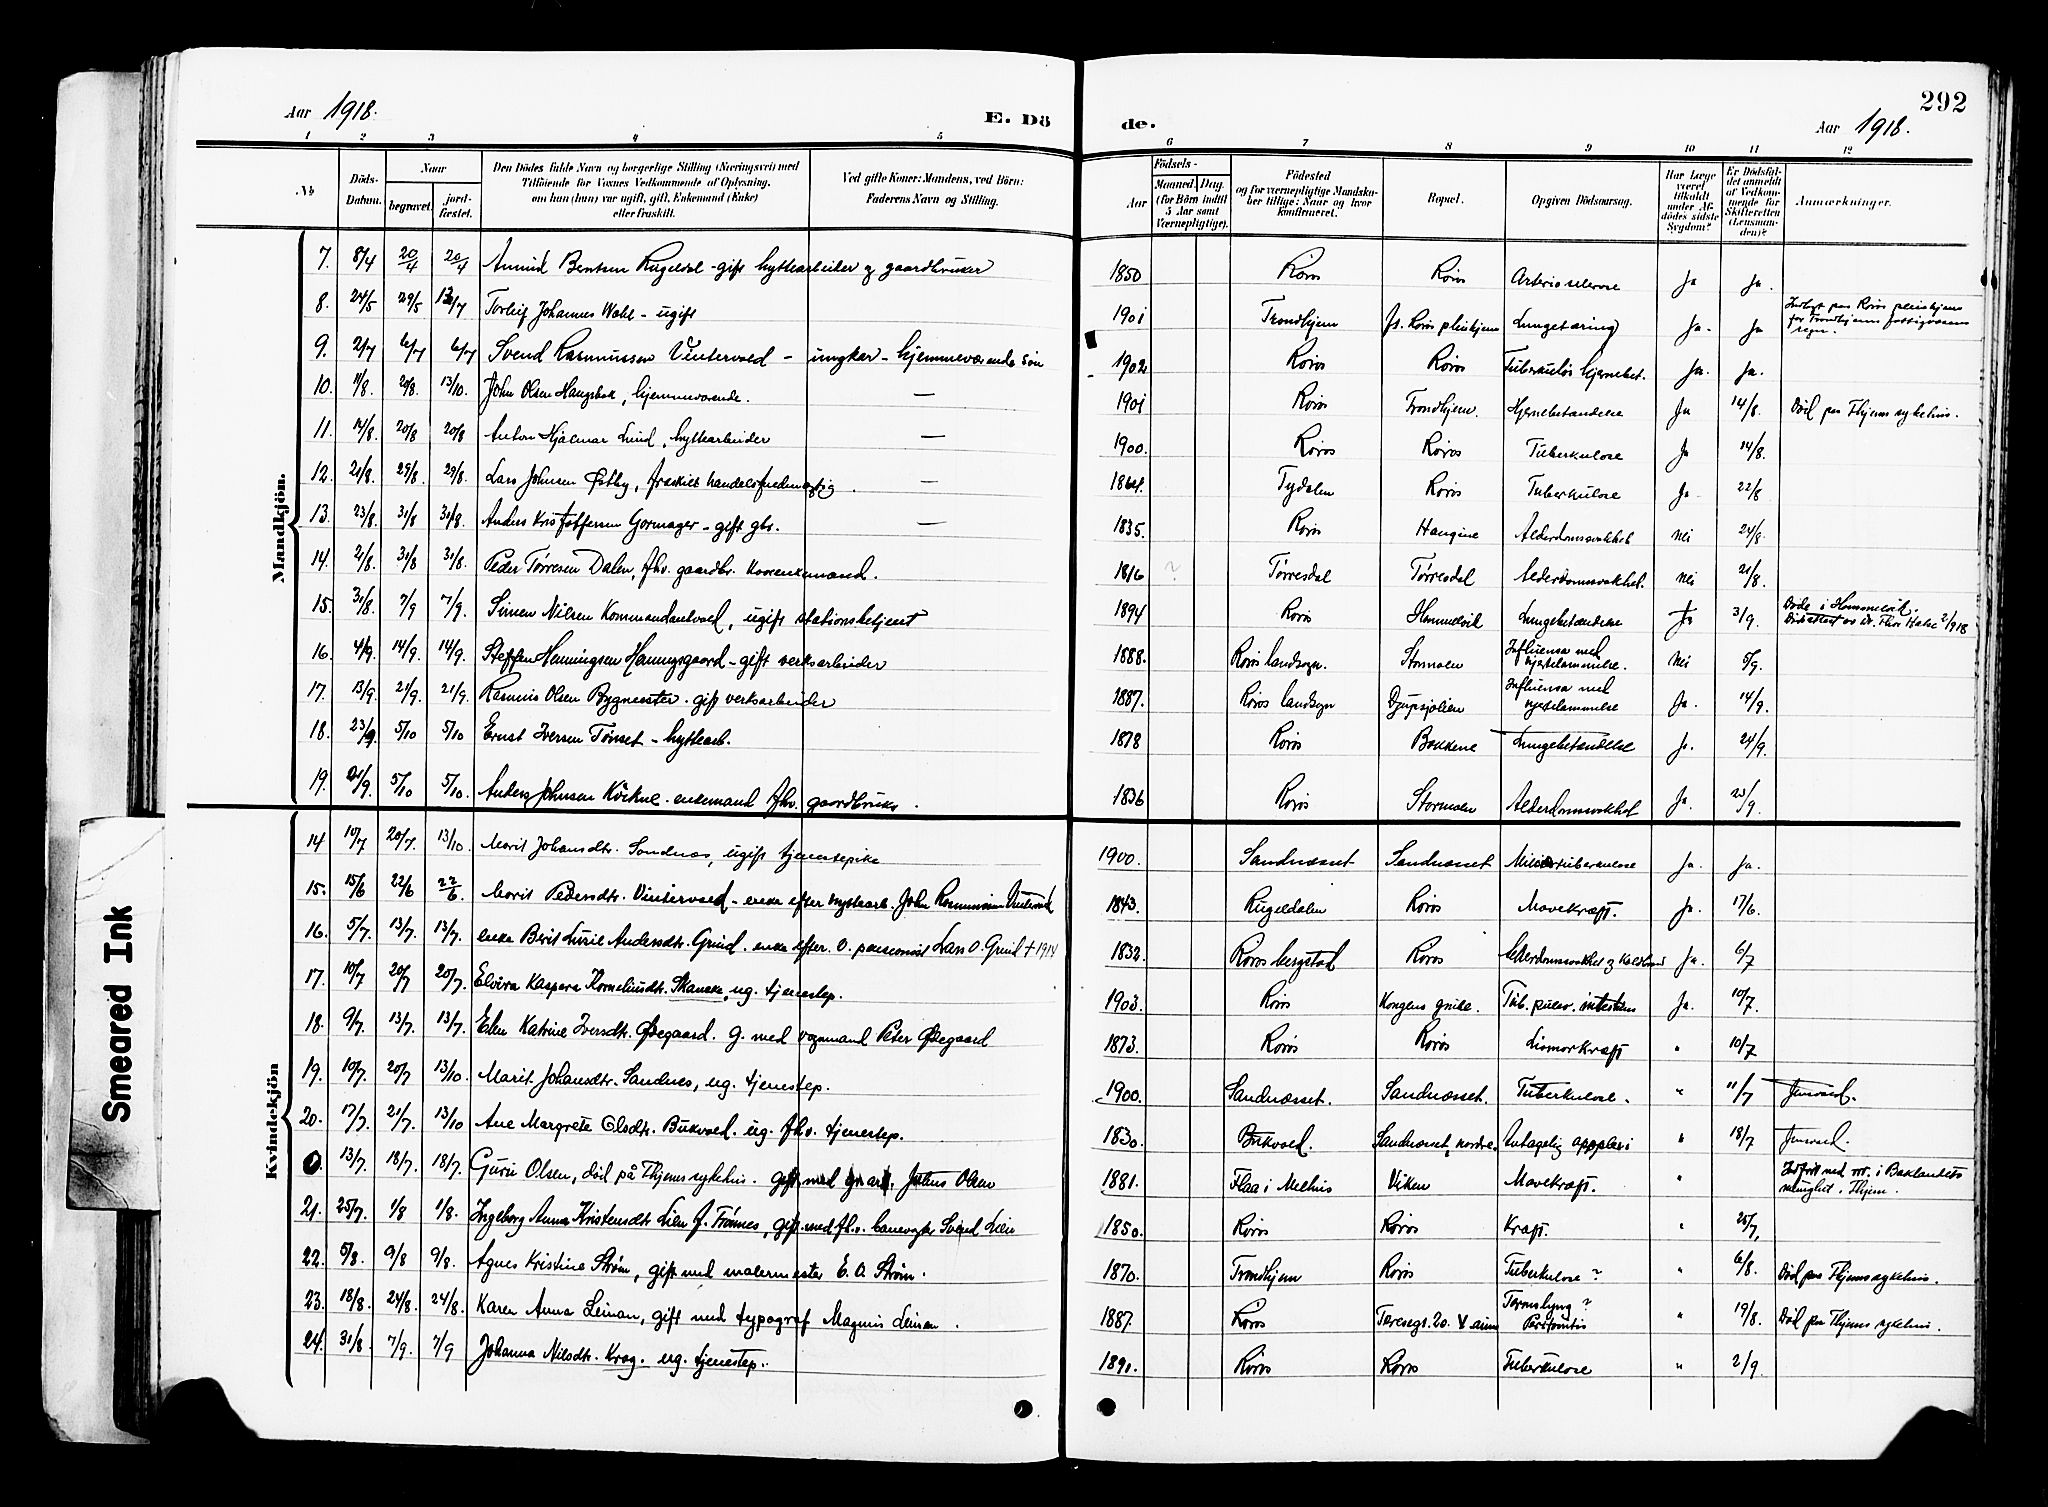 292
Aar 1918.
E. Dö
de.
Aar 1918.
1 2 3 4 5 6 7 8 9 10 11 12
№
Döds-Datum.
Naar
begravet.
jord-fæstet.
Den Dödes fulde Navn og borgerlige Stilling (Næringsvei) med
Tilföiende for Voxnes Vedkommende af Oplysning,
om han (hun) var ugift, gift, Enkemand (Enke)
eller fraskilt.
Ved gifte Koner: Mandens, ved Börn:
Faderens Navn og Stilling.
Födsels-
Aar
Maaned. Dag.
(for Börn indtil
5 Aar samt
Værnepligtige).
Födested
og for værnepligtige Mandska-
ber tillige: Naar og hvor
konfirmeret.
Bopæl.
Opgiven Dödsaarsag.
Har Læge
været
tilkaldt
under Af-
dödes sidste
Sygdom?
Er Dödsfal-
det anmeldt
af Vedkom-
mende for
Skifteretten
(Lensman-
den)?
Anmærkninger.
Mandkjön.
7. 8/4 20/4 20/4 Bentsen Rugeldal - gift hyttearbeider og gaardbruker 1850 Røros Røros Arteriosclerose Ja Ja.
8. 24/5 29/5 Torleif Johannes Wahl - ugift 1901 Trondhjem Røros pleiehjem Lungetæring Ja. Ja
9. 2/7 6/7 6/7 Svend Rasmussen Vintervold - ungkar - hjemmeværende søn 1902 Røros Røros Tuberkuløs hjernebet. Ja. Ja.
10. 11/8 20/8. 13/10. John Olsen Haugsbak, hjemmeværende. — 1901 Røros Trondhjem. Hjernebetændelse Ja 14/8. Död paa Thjems sykehus.
11. 14/8. 20/8 20/8 Anton Hjalmar Lund, hyttearbeider — 1900. Røros Røros Tuberkulose Ja 14/8.
12. 21/8. 29/8 29/8. Lars Johnsen Østby, fraskilt handelsfuldmægtig. — 1864. Tydalen Røros Tuberkulose Ja 22/8
13. 23/8. 31/8 31/8. Anders Kristoffersen Gormager - gift gbr. — 1835. Røros Haugene Alderdomssvakhet nei 24/8.
14. 21/8. 31/8 31/8. Peder Tørresen Dalen, fhv. gaardbr. 1816 ? Tørresdal Tørresdal Alderdomssvakhet. nei 21/8.
15. 31/8. 7/9 7/9. Simen Nilsen Kommandantvold, ugift stationsbetjent 1894 Røros Hommelvik Lungebetændelse Ja 3/9. Døde i Hommelvik.
16. 4/9. 14/9. 14/9. Steffen Henningsen Henningsgaard - gift verksarbeider 1888. Røros landsogn. Stormoen Influensa med hjertelammelse. nei 5/9.
17. 13/9. 21/9. 21/9. Rasmus Olsen Bygmester. gift verksarbeider 1887. Røros landsogn Djupsjølien Influensa med hjertelammelse Ja. 14/9.
18. 23/9. 5/10 5/10 Ernst Iversen Tønset - hyttearb. 1878 Røros Bakkene Lungebetændelse Ja. 24/9.
19. 21/9. 5/10 5/10. Anders Johnsen Kölkne. enkemand fhv. gaardbruker. 1836 Røros Stormoen Alderdomssvakhet Ja. 23/9.
Kvindekjön
14 10/7 20/7. 13/10. Marit Johansdtr. Sandnes, ugift tjenestepike 1900. Sandnæsset Sandnæsset Miliærtuberkulose Ja. Ja.
15. 15/6 22/6 22/6. Marit Pedersdtr. Vintervold - enke efter hyttearb. John Rasmussen Vintervold 1843. Rugeldalen Røros Mavekræft. Ja. 17/6.
16. 5/7. 13/7. 13/7. enke Berit Lurie Andersdtr. Grind. enke efter. pensionist Lars O. Grind + 1914 1832. Røros bergstad Røros Alderdomssvakhet og Koldbrand Ja. 6/7
17. 10/7 20/7 20/7. Elvira Kaspara Korneliusdtr. Skancke, ug. tjenestep. 1903. Røros Kongens grube. Tub. pulm. intestinis Ja. 10/7.
18. 9/7. 13/7. 13/7. Elen Katrine Iversdtr. Ødegaard. g. med vognmand Peter Ødegaard 1873. Røros Røros Livmorkræft " 10/7
19. 10/7. 20/7 13/10. Marit Johansdtr. Sandnes, ug. tjenestep. 1900. Sandnæsset. Sandnæsset. Tuberkulose. " 11/7
20. 17/7. 21/7. 13/10 Ane Margrete Olsdtr. Bukvold. ug. fhv. tjenestep. 1830. Bukvold. Sandnæsset, nordre. Antagelig apoplexi " 18/7
0. 13/7. 18/7. 18/7. Guru Olsen, død på Thjems sykehus. gift med Julius Olsen 1881. Flaa i Melhus Viken Mavekræft. "
21. 25/7. 1/8 1/8. Ingeborg Anna Kristensdtr Lien f. Tønnes, gift med fhv. banevogter Svend Lien 1850. Røros Røros Kræft. " 25/7.
22. 5/8. 9/8 9/8. Agnes Kristine Strøm, gift med malermester E. A. Strøm. 1870. Trondhjem Røros Tuberkulose? " 6/8. Död paa Thjems sykehus.
23. 18/8. 24/8. 24/8. Karen Anna Leinan, gift med typograf Magnus Leinan. 1887. Røros Tarmslyng? " 19/8. Död paa Thjems sykehus.
24. 31/8 7/9. 7/9 Johanna Nilsdtr. Krog. ug. tjenestep. 1890. Røros Røros Tuberkulose " 2/9.
Smeared Ink